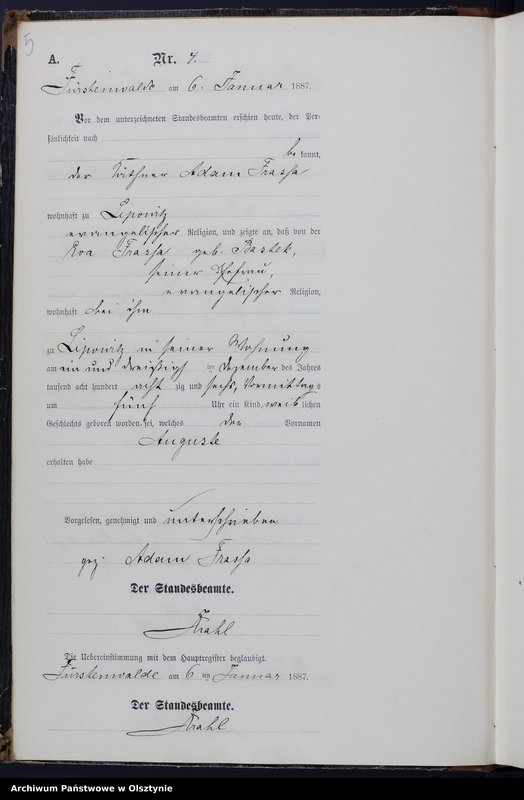 5
A. Nr. 4.
Fürstenwalde am 6. Januar 1887.
Vor dem unterzeichneten Standesbeamten erschien heute, der Per-
sönlichkeit nach
be kannt,
der Käthner Adam Frassa
wohnhaft zu Lipowitz
evangelischer Religion, und zeigte an, daß von der
Eva Frassa geb. Bastek,
seiner Ehefrau,
evangelischer Religion,
wohnhaft bei ihm
zu Lipowitz in seiner Wohnung
am ein und dreißigsten Dezember des Jahres
tausend acht hundert acht zig und sechs, Vormittags
um fünf Uhr ein Kind weib lichen
Geschlechts geboren worden sei, welches den Vornamen
Auguste
erhalten habe
Vorgelesen, genehmigt und unterschrieben
gez. Adam Frassa
Der Standesbeamte.
Krahl
Die Uebereinstimmung mit dem Hauptregister beglaubigt.
Fürstenwalde am 6 ten Januar 1887.
Der Standesbeamte.
Krahl
Archiwum Państwowe w Olsztynie